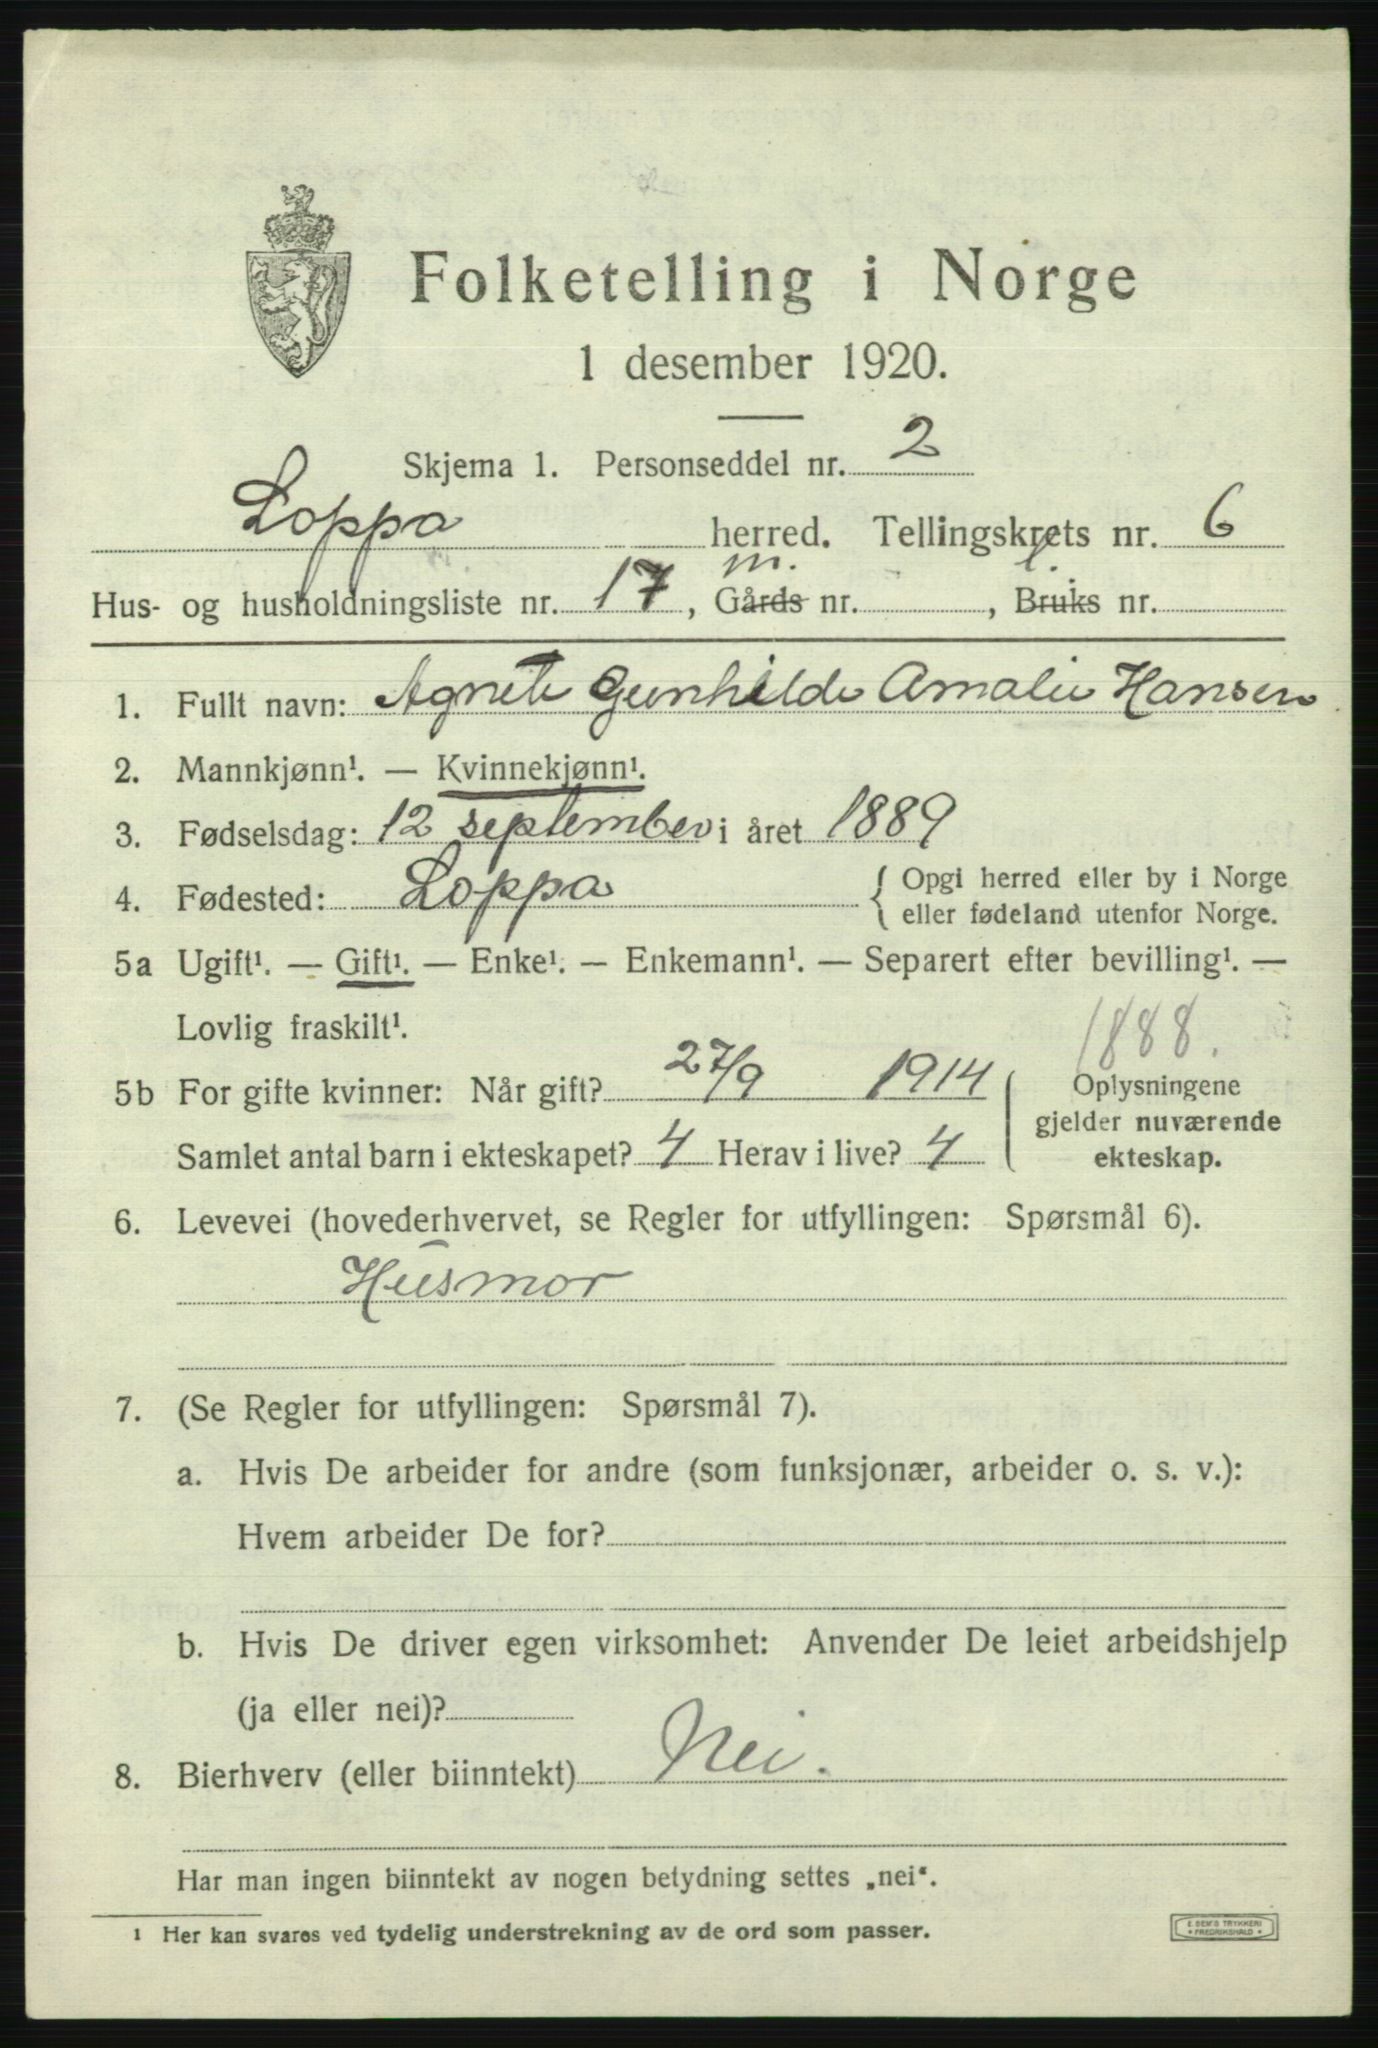 Folketelling i Norge
1 desember 1920.
Skjema 1. Personseddel nr. 2
Loppa herred. Tellingskrets nr. 6
m. l.
Hus- og husholdningsliste nr. 17, Gårds nr. , Bruks nr.
1. Fullt navn: Agnete Gunhilde Amalie Hansen
2. Mannkjønn¹. — Kvinnekjønn¹.
3. Fødselsdag: 12 september i året 1889
4. Fødested: Loppa { Opgi herred eller by i Norge
eller fødeland utenfor Norge.
5a Ugift¹. — Gift¹. — Enke¹. — Enkemann¹. — Separert efter bevilling¹. —
Lovlig fraskilt¹.
1888.
5b For gifte kvinner: Når gift? 27/9 1914 Oplysningene
gjelder nuværende
Samlet antal barn i ekteskapet? 4 Herav i live? 4 ekteskap.
6. Levevei (hovederhvervet, se Regler for utfyllingen: Spørsmål 6).
Husmor
7. (Se Regler for utfyllingen: Spørsmål 7).
a. Hvis De arbeider for andre (som funksjonær, arbeider o. s. v.):
Hvem arbeider De for?
b. Hvis De driver egen virksomhet: Anvender De leiet arbeidshjelp
(ja eller nei)?
8. Bierhverv (eller biinntekt) Nei.
Har man ingen biinntekt av nogen betydning settes „nei“.
1 Her kan svares ved tydelig understrekning av de ord som passer.
E. SEM'S TRYKKERI
• FREDRIKSHALD •